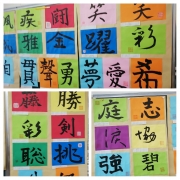 疾 闘 笑 笑
雅 金 躍 彩
貫 聲 勇 夢 愛 希
勝
彩 剣
聡 挑
庭 志
涙 協
強 碧